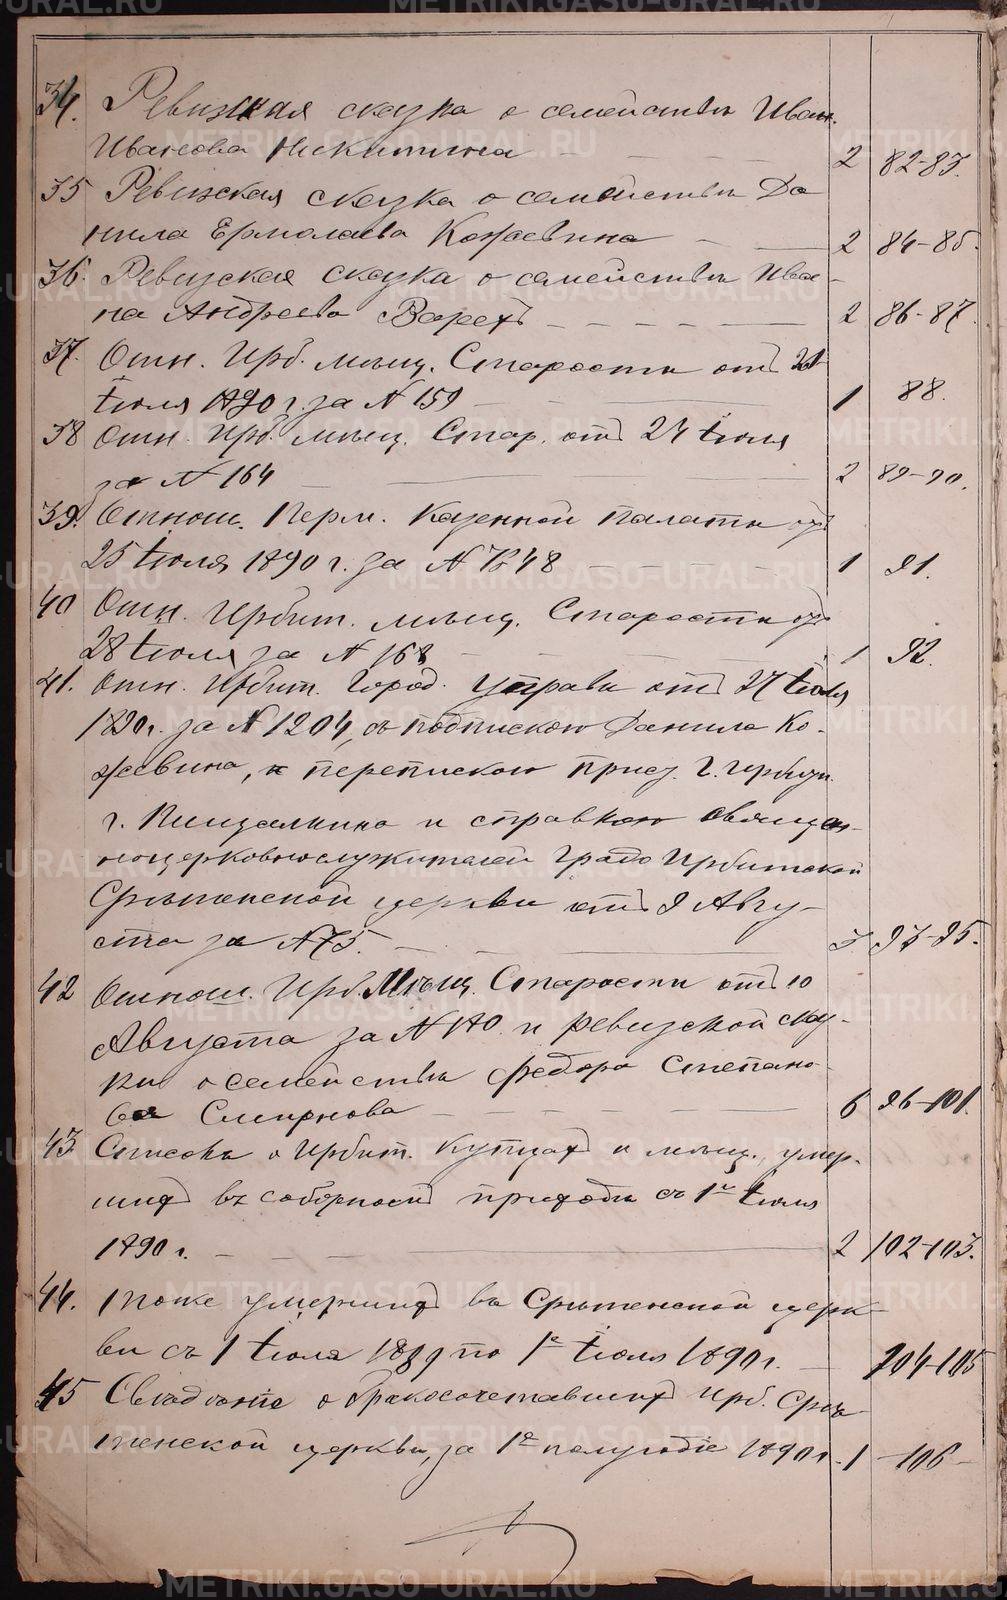 34. Ревизская сказка о семействѣ Иван.
Иванова Никитина 2 82-83.
35 Ревизская сказка о семействѣ Да
нила Ермолаева Кожевина 2 84-85.
36. Ревизская сказка о семействѣ Ива-
на Андреева 2 86-87.
37. Отн. Ирб. мѣщ. Старосты отъ 21
Іюля 1890 г. за N 159 1 88.
38 Отн. Ирб. мѣщ. Стар. отъ 24 Іюля
за N 164 2 89-90.
39. Отнош. Перм. Казенной Палаты отъ
25 Іюля 1890 г. за N 1 91.
40 Отн. Ирбит. мѣщ. Старосты отъ
28 Іюля за N 168 1 92.
41. Отн. Ирбит. Город. Управы отъ 27 Іюля
1890 г. за N 1204, съ подпискою Данила Ко-
жевина, перепискою г. Ирбит.
г. и справкою священ-
ноцерковнослужителей Градо Ирбитской
Срѣтенской церкви отъ 9 Авгу-
ста за N 75. 3 93-95.
42 Отнош. Ирб. Мѣщ. Старосты отъ 10
Августа за N и ревизской сказ-
ки о семействѣ Федора Степано
ва Смирнова 6 96-101.
43 Списокъ о Ирбит. купцахъ и мѣщ., умер-
шихъ въ соборномъ приходѣ съ 1го Іюля
1890 г. 2 102-103.
44. Тоже умершихъ въ Срѣтенской церк-
ви съ 1 Іюля 1889 по 1е Іюля 1890 г. 104-105
45 Свѣдѣніе о бракосочетавшихся Ирб. Срѣ-
тенской церкви, за 1е полугодіе 1890 г. 1 106
METRIKI.GASO-URAL.RU